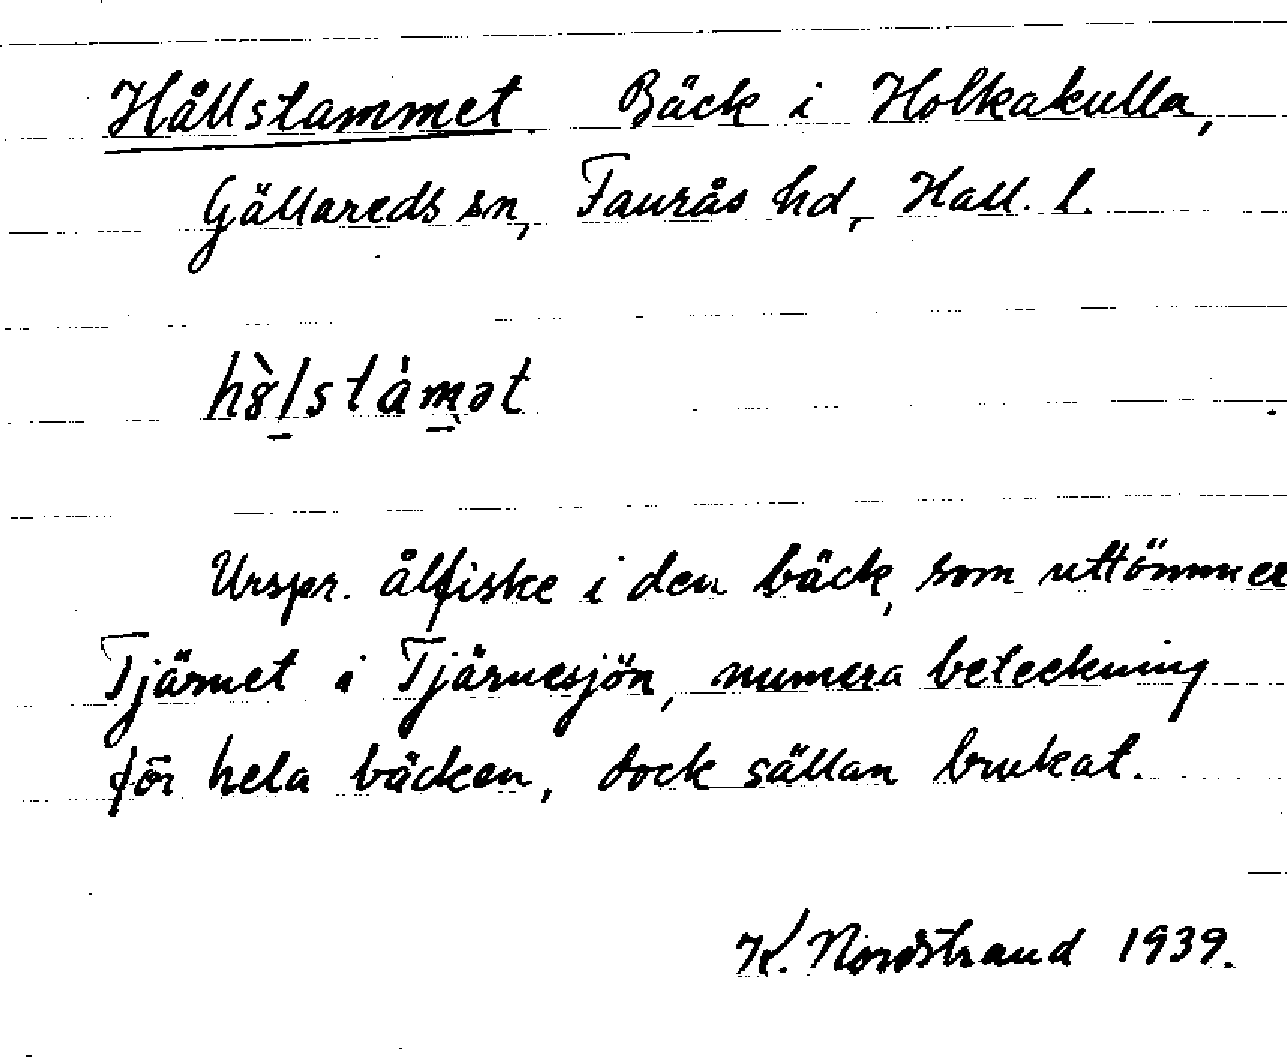 Hållstammet. Bäck i Holkakulla,
Gällareds sn, Faurås hd, Hall. l.
hȣ̀lstámət
Urspr. ålfiske i den bäck, som uttömmer
Tjärnet i Tjärnesjön, numera beteckning
för hela bäcken, dock sällan brukat.
K. Nordstrand 1939.